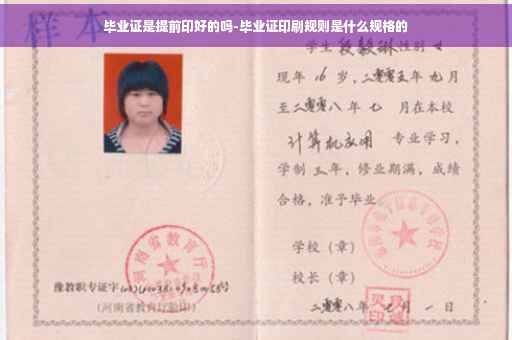 毕业证是提前印好的吗-毕业证印刷规则是什么规格的
样本
学生段毅琳性别女
现年16岁，二零零五年九月
至二零零八年七月在本校
计算机应用专业学习，
学制三年，修业期满，成绩
合格，准予毕业。
学校（章）
河南省教育厅
豫教职专证字
校长（章）
（河南省教育厅验印）
二零零八年 月一日